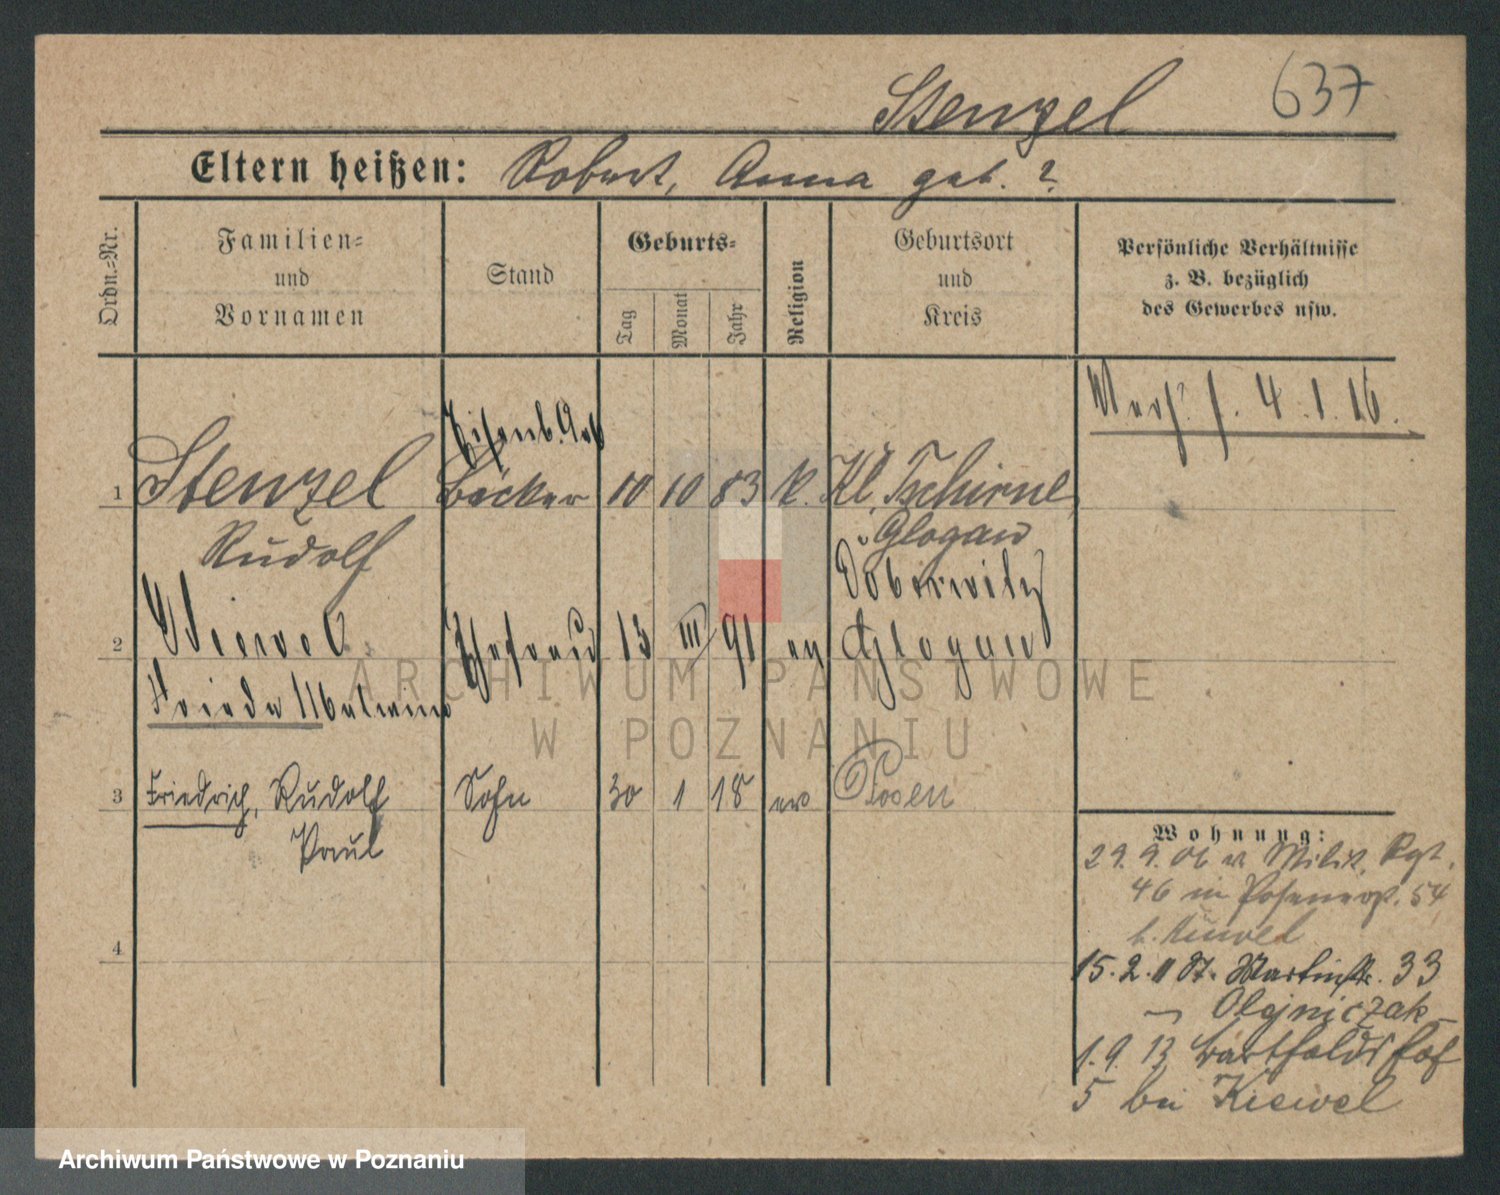 Stenzel 637
Eltern heißen: Robert, Anna geb. ?
Ordn.=Nr.
Familien=
und
Vornamen
Stand
Geburts=
Tag
Monat
Jahr
Religion
Geburtsort
und
Kreis
Persönliche Verhältnisse
z. B. bezüglich
des Gewerbes usw.
4.1.16.
Eisenb. Arb
1 Stenzel Bäcker 10 10 83 k. Kl. Tschirne
Rudolf Glogau
Doberwitz
2 Kiewel Ehefrau 13 III 91 ev Glogau
Frieda Malwine
3 Friedrich, Rudolf Sohn 30 1 18 ev Posen
Paul
4
Wohnung:
29.9.06 v. Milit. Rgt.
46 in Posen 54
b. Kiewel
15.2.11 Martinstr. 33
Olejniczak
1.9.13 Bartholdshof
5 bei Kiewel
ARCHIWUM PAŃSTWOWE
W POZNANIU
Archiwum Państwowe w Poznaniu